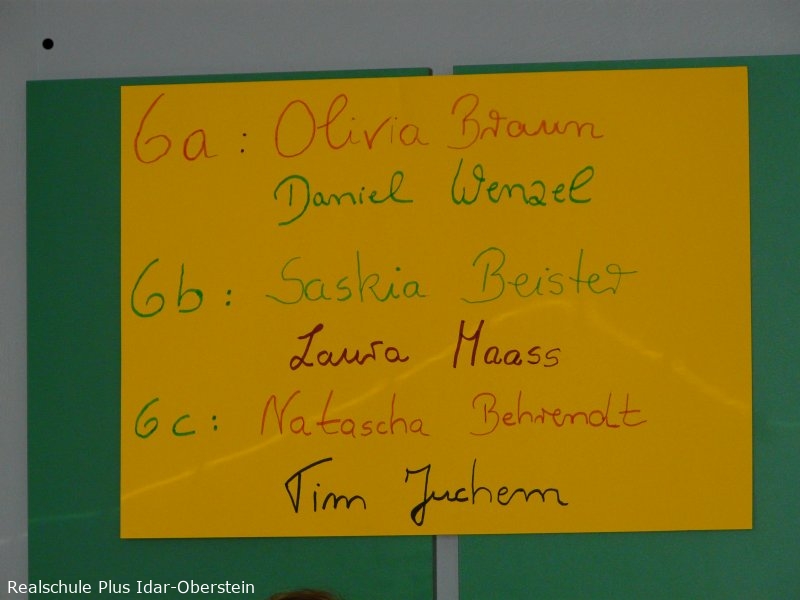 6a: Olivia Braun
Daniel Wenzel
6b: Saskia Beister
Laura Maass
6c: Natascha Behrendt
Tim Juchem
Realschule Plus Idar-Oberstein